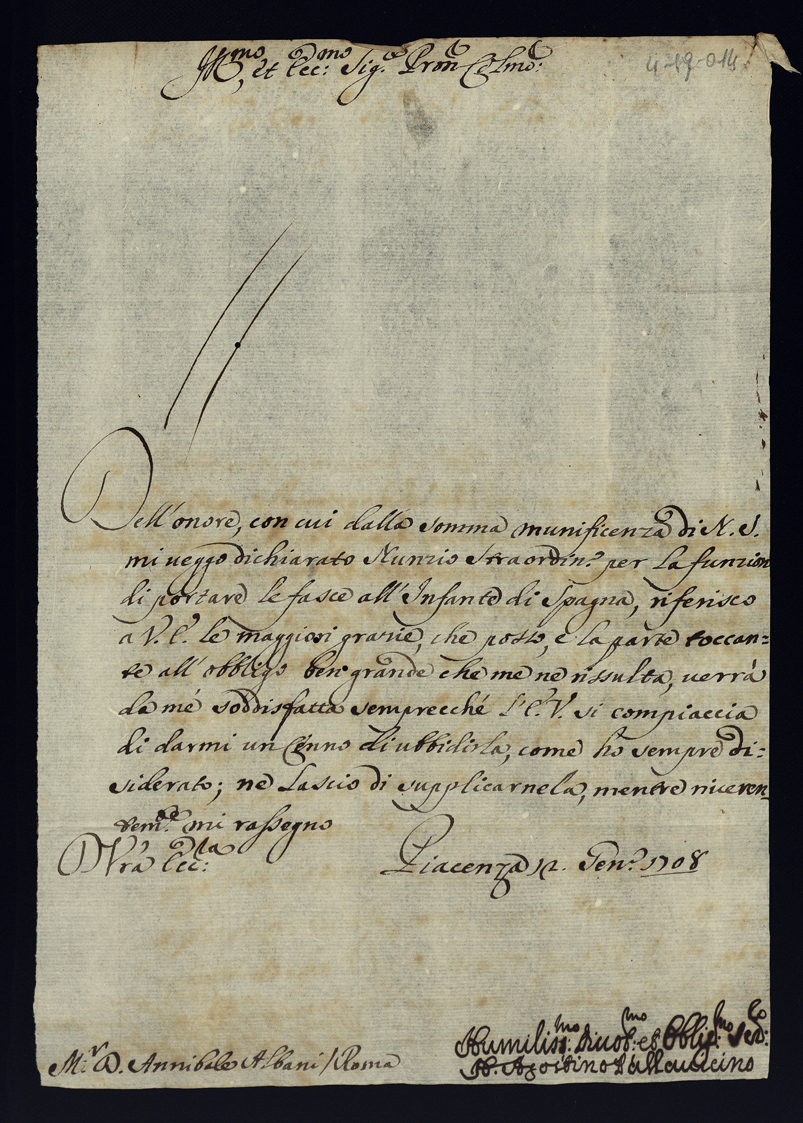 Ill.mo, et Ecc.mo Sig.e Pron Colmo:
4-19-014
Dell'onore, con cui dalla somma munificenza di N. S.
mi veggo dichiarato Nunzio Straordin.o per la funzion
di portare le fasce all'Infante di Spagna, riferisco
a V. E. le maggiori grazie, che posso, e la parte toccan=
te all'obbligo ben grande che me ne rissulta, verrà
da mé soddisfatta semprecché l'E. V. si compiaccia
di darmi un Cenno di ubbidirla, come hò sempre di=
siderato; ne lascio di supplicarnela, mentre riveren=
tem.e mi rassegno
D Vrà Ecc:za
Piacenza 12. Gen.o 1708
Humiliss:mo Divot:mo et Oblig:mo Ser:
M.r D. Annibale Albani / Roma